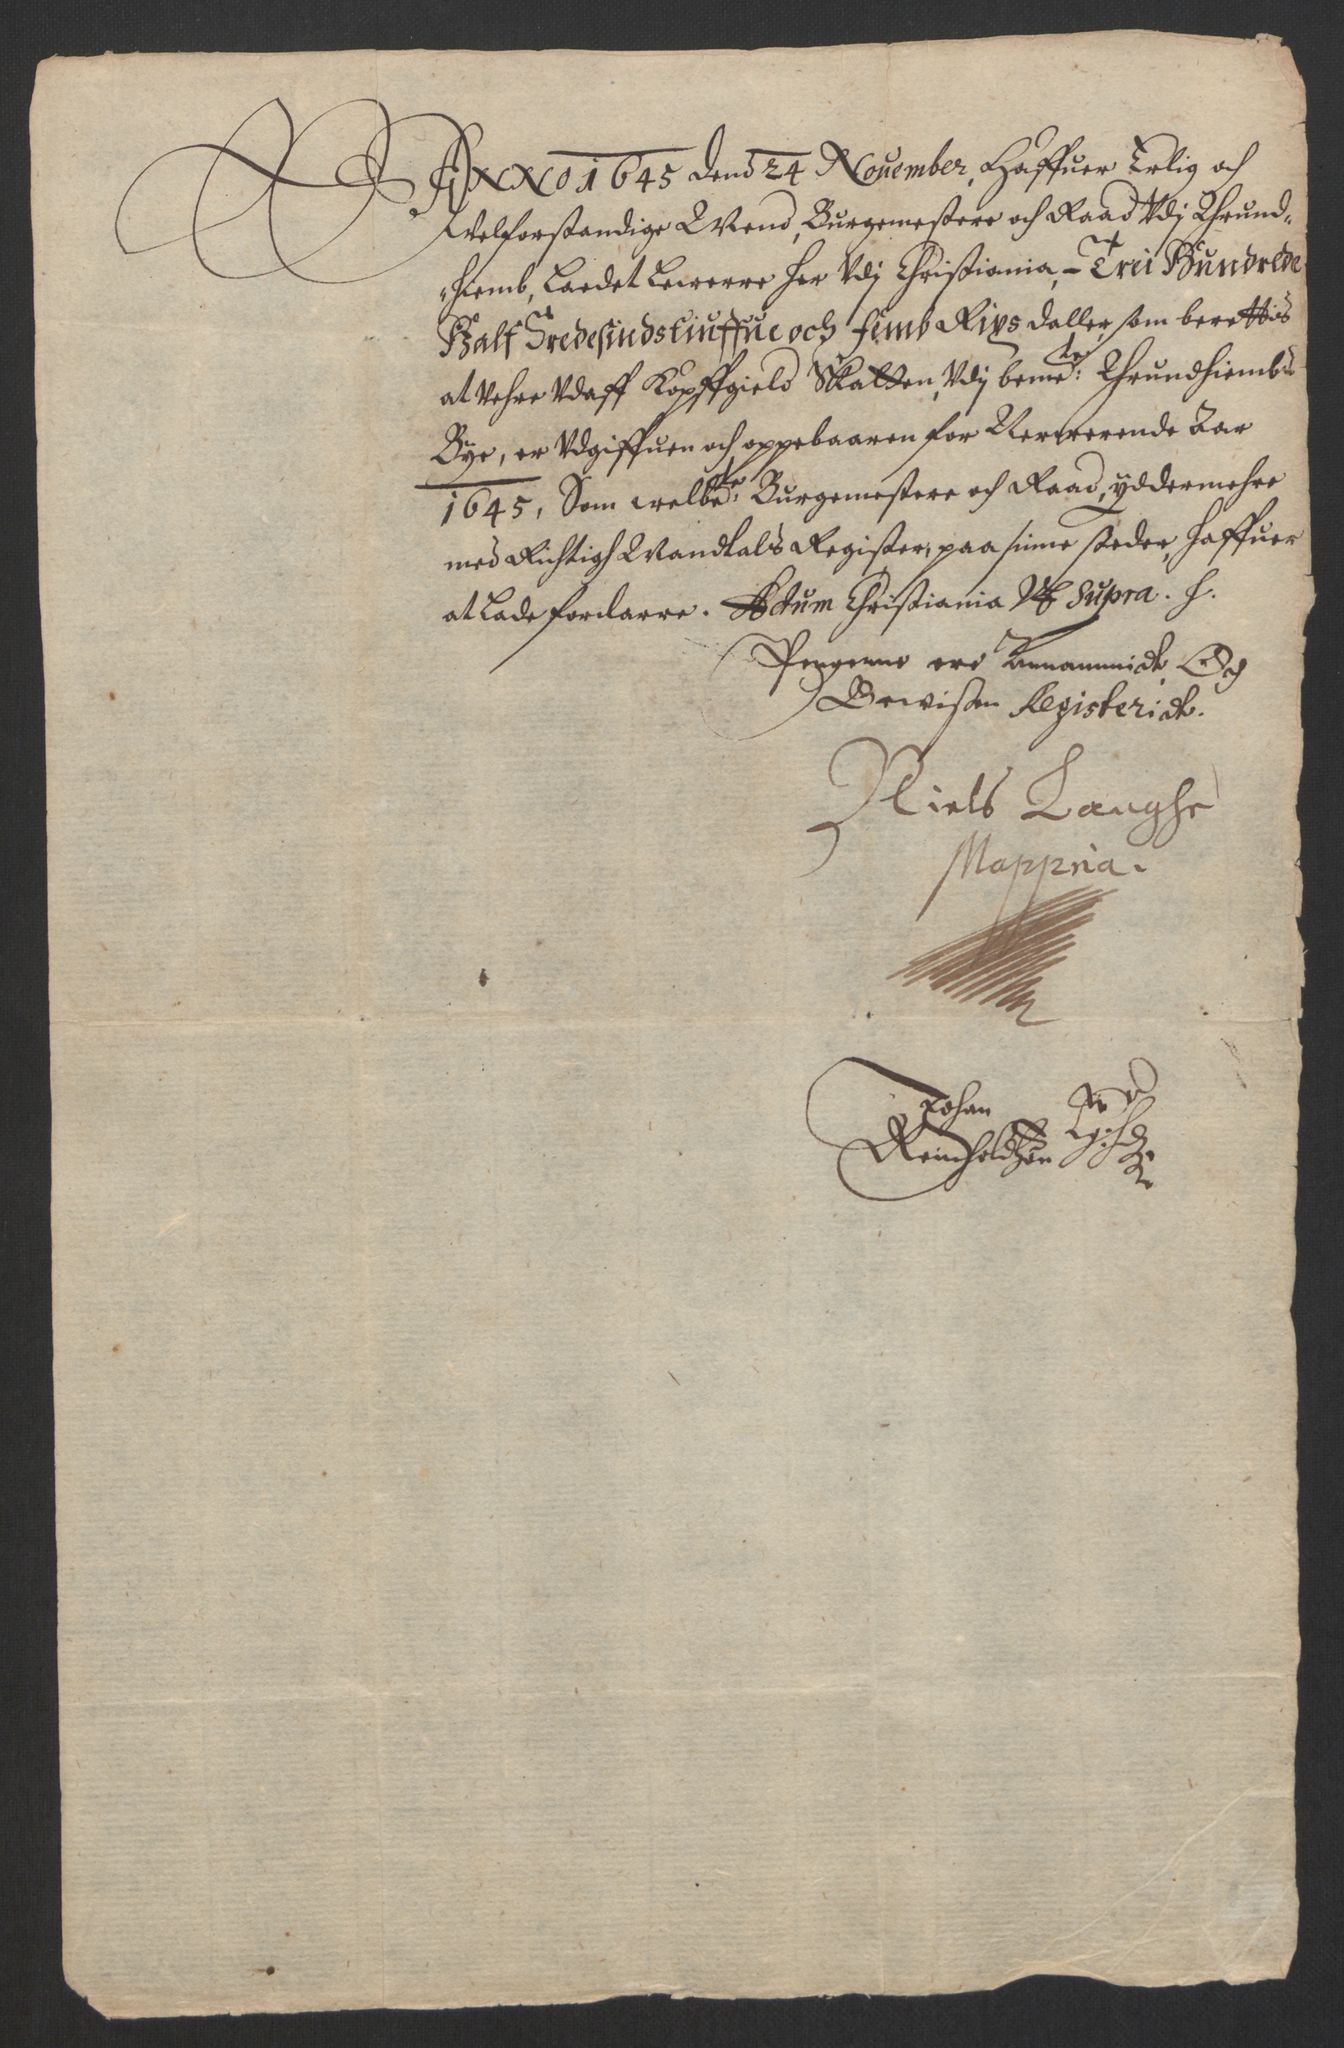 Anno 1645 dend 24 Nouember, Haffuer Erlig och
Velforstandige Mend, Burgemestere och Raad Vdj Thrund-
-hiemb, Laedet Leuerre her Vdj Christiania, - Trei Hundrede
Half Tredesindstiuffue och femb Rixs daller, som berettis
at Vehre Vdaff Kopffgield Skatten, Vdj bemte: Thrundhiembs
Bye, er Vdgiffuen och oppebaaren for Nerwerende Aar
1645, Som welbete: Burgemestere och Raad, yddermehre
med Richtigh Mandtals Register, paa sinne steder, haffuer
at Lade forclarre. Actum Christiania Vt Supra.
Pengenne ere Annammidt, Og
Bewisen Registeridt.
Niels Langhe
Mappria.
Johan
Reinholdtzøn